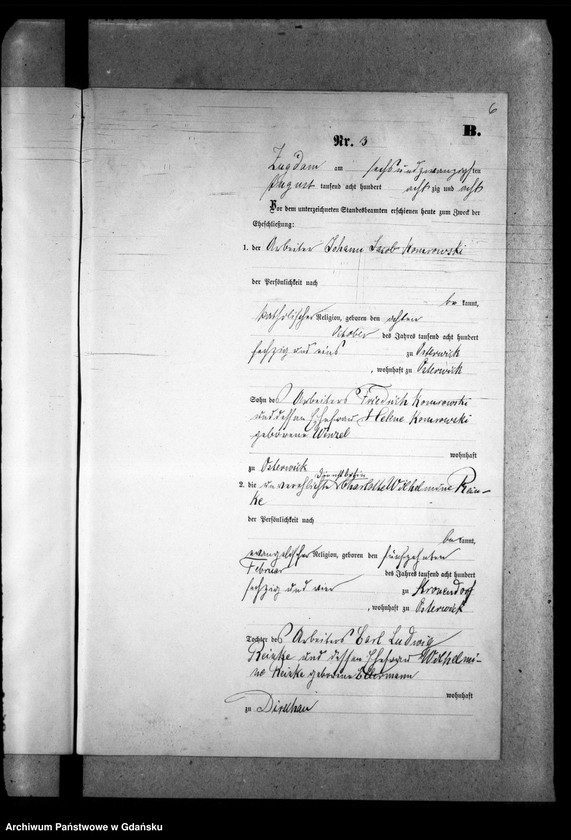 6
B.
Nr. 3
Zugdam am sechsundzwanzigsten
August tausend acht hundert achtzig und acht
Vor dem unterzeichneten Standesbeamten erschienen heute zum Zweck der
Eheschließung:
1. der Arbeiter Johann Jacob Komrowski
der Persönlichkeit nach
bekannt,
katholischer Religion, geboren den achten
October des Jahres tausend acht hundert
sechzig und eins zu Osterwick
, wohnhaft zu Osterwick
Sohn des Arbeiters Friedrich Komrowski
und dessen Ehefrau Helene Komrowski
geborene Winzel
wohnhaft
zu Osterwick
Dienstbotin
2. die unverehelichte Charlotte Wilhelmine
ke
der Persönlichkeit nach
bekannt,
evangelischer Religion, geboren den fünfzehnten
Februar des Jahres tausend acht hundert
sechzig und vier zu
, wohnhaft zu Osterwick
Tochter des Arbeiters Carl Ludwig
und dessen Ehefrau Wilhelmi-
ne geborene Ellermann
wohnhaft
zu Dirschau
Archiwum Państwowe w Gdańsku